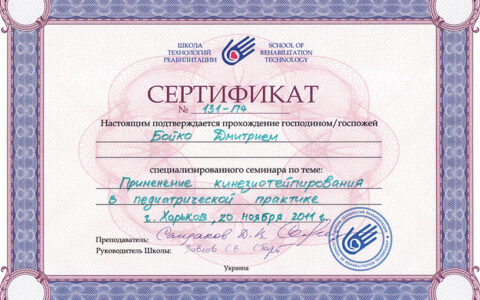 ШКОЛА
ТЕХНОЛОГИЙ
РЕАБИЛИТАЦИИ
SCHOOL OF
REHABILITATION
TECHNOLOGY
СЕРТИФИКАТ
№ 131-П4
Настоящим подтверждается прохождение господином/госпожей
Бойко Дмитрием
специализированного семинара по теме:
Применение кинезиотейпирования
в педиатрической практике
г. Харьков, 20 ноября 2011 г.
Преподаватель:
Руководитель Школы: С.В.
Украина